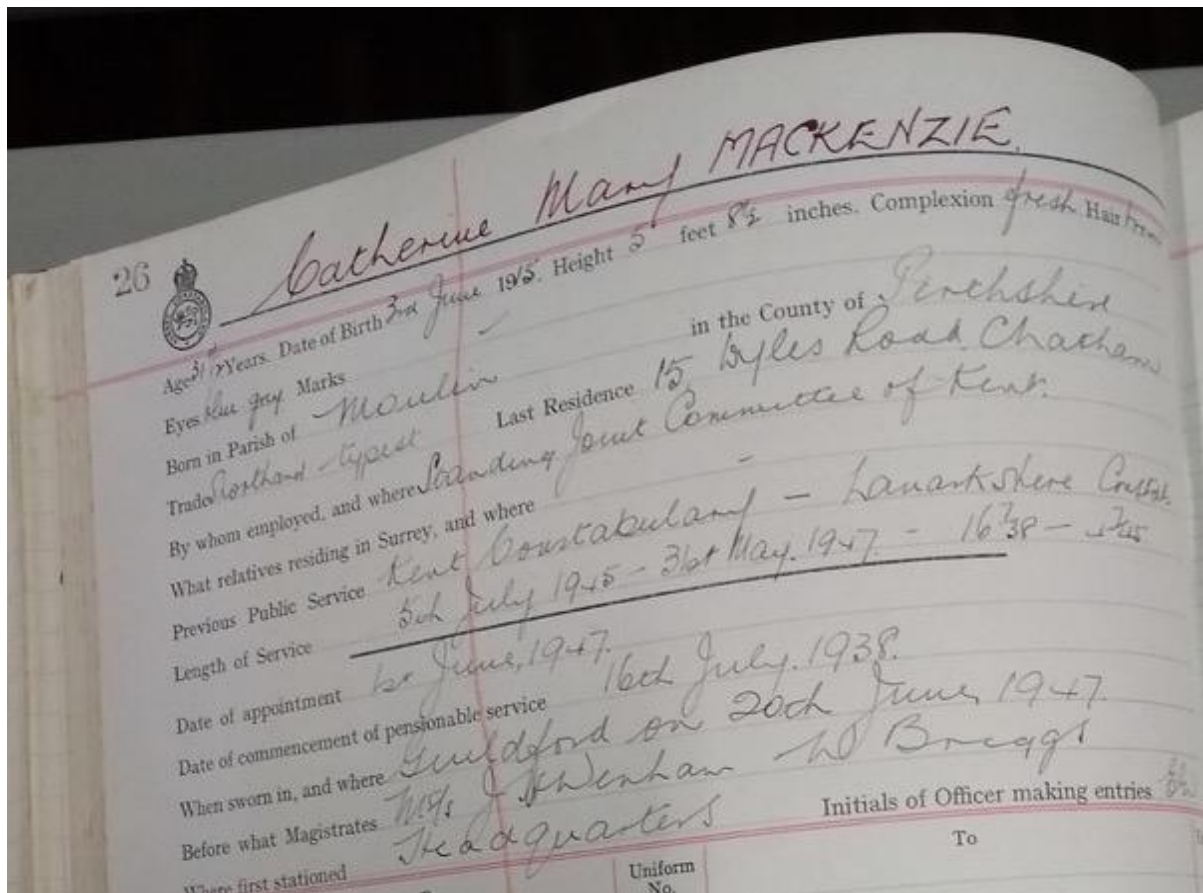 Catherine Mary MACKENZIE.
26
Age 31 Years. Date of Birth 3rd June 1915. Height 5 feet 8½ inches. Complexion fresh Hair brown
Eyes blue grey Marks
Born in Parish of Moulin in the County of Perthshire
Trade Shorthand typist Last Residence 15, Lyles Road Chatham
By whom employed, and where Standing Joint Committee of Kent.
What relatives residing in Surrey, and where -
Previous Public Service Kent Constabulary - Lanarkshire Constab.
Length of Service 5th July 1945 - 31st May. 1947 - 16/7/38 -
Date of appointment 1st June, 1947.
Date of commencement of pensionable service 16th July. 1938.
When sworn in, and where Guildford on 20th June 1947.
Before what Magistrates J Wenham W Briggs
Where first stationed Headquarters
Initials of Officer making entries
Uniform No.
To